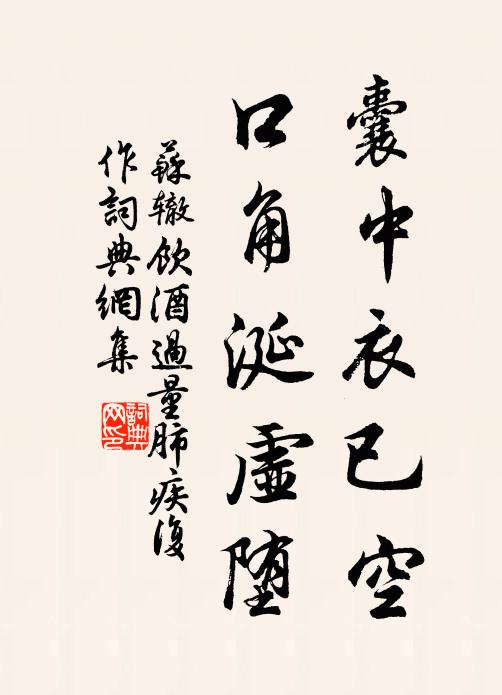 囊中衣已空
口角涎虛墮
蘇辙飲酒過量肺疾復
作詞典網集
詞典
网印